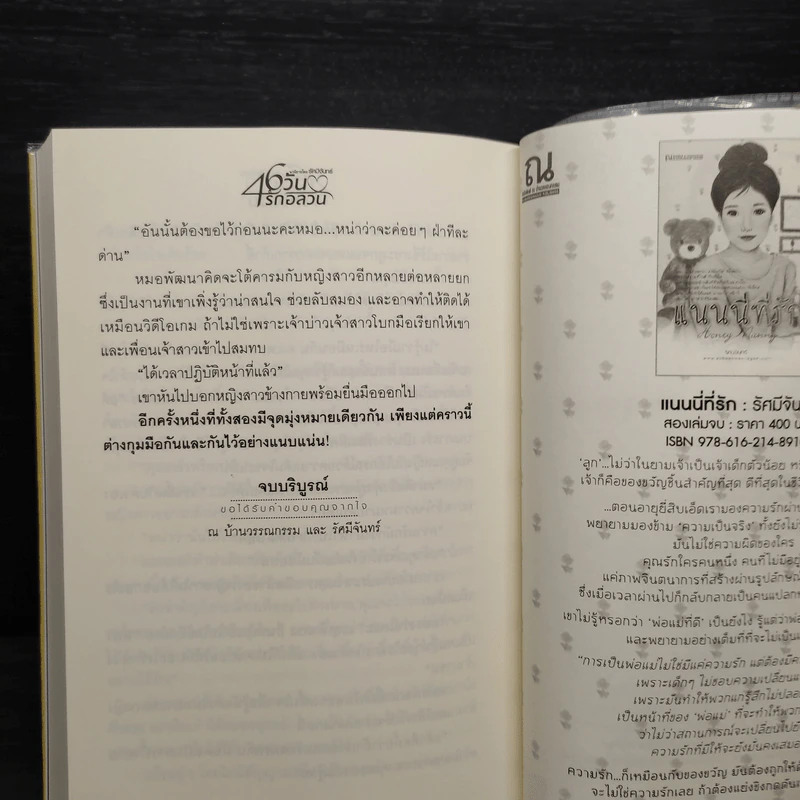 46 วัน
รักอลวน
"อันนั้นต้องขอไว้ก่อนนะคะหมอ...หน่าว่าจะค่อยๆ ฝ่าทีละ
ด่าน"
หมอพัฒนาคิดจะโต้คารมกับหญิงสาวอีกหลายต่อหลายยก
ซึ่งเป็นงานที่เขาเพิ่งรู้ว่าน่าสนใจ ช่วยลับสมอง และอาจทำให้ติดได้
เหมือนวิดีโอเกม ถ้าไม่ใช่เพราะเจ้าบ่าวเจ้าสาวโบกมือเรียกให้เขา
และเพื่อนเจ้าสาวเข้าไปสมทบ
"ได้เวลาปฏิบัติหน้าที่แล้ว"
เขาหันไปบอกหญิงสาวข้างกายพร้อมยื่นมือออกไป
อีกครั้งหนึ่งที่ทั้งสองมีจุดมุ่งหมายเดียวกัน เพียงแต่คราวนี้
ต่างกุมมือกันและกันไว้อย่างแนบแน่น!
จบบริบูรณ์
ขอได้รับคำขอบคุณจากใจ
ณ บ้านวรรณกรรม และ รัศมีจันทร์
ณ
แนนนี่ที่รัก
แนนนี่ที่รัก : รัศมีจัน
สองเล่มจบ : ราคา 400 บ
ISBN 978-616-214-891
'ลูก'...ไม่ว่าในยามเจ้าเป็นเจ้าเด็กตัวน้อย
เจ้าก็คือของขวัญชิ้นสำคัญที่สุด ดีที่สุดในชี
...ตอนอายุยี่สิบเอ็ดเรามองความรักผ่าน
พยายามมองข้าม 'ความเป็นจริง' ทั้งยังไม่
มันไม่ใช่ความผิดของใคร
คุณรักใครคนหนึ่ง คนที่ไม่มีอยู่
แค่ภาพจินตนาการที่สร้างผ่านรูปลักษณ์
ซึ่งเมื่อเวลาผ่านไปก็กลับกลายเป็นคนแปลก
เขาไม่รู้หรอกว่า 'พ่อแม่ที่ดี' เป็นยังไง รู้แต่ว่าพ่อ
และพยายามอย่างเต็มที่ที่จะไม่เป็น
"การเป็นพ่อแม่ไม่ใช่มีแค่ความรัก แต่ต้องมี
เพราะเด็กๆ ไม่ชอบความเปลี่ยน
เพราะมันทำให้พวกแกรู้สึกไม่ปลอด
เป็นหน้าที่ของ 'พ่อแม่' ที่จะทำให้พวก
ว่าไม่ว่าสถานการณ์จะเปลี่ยนไป
ความรักที่มีให้จะยังมั่นคงเสมอ
ความรัก...ก็เหมือนกับของขวัญ มันต้องถูกให้
จะไม่ใช่ความรักเลย ถ้าต้องแย่งชิงกด